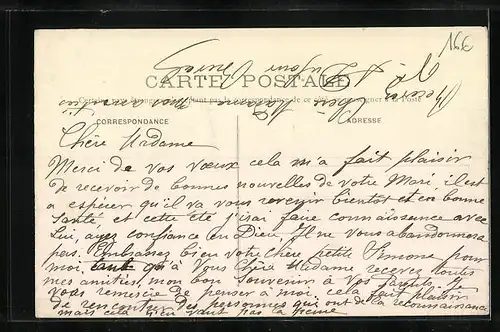 16€
CARTE POSTALE
CORRESPONDANCE
ADRESSE
Chère Madame
Merci de vos vœux cela m'a fait plaisir
de recevoir de bonnes nouvelles de votre Mari, il est
a espérer qu'il va vous revenir bientôt et en bonne
Santé et cette été j'irai faire connaissance avec
Lui, ayez confiance en Dieu, Il ne vous abandonnera
pas. Embrassez bien votre chère petite Simone pour
moi, qu'a Vous Chère Madame recevez toutes
mes amitiés, mon bon Souvenir à vos parents. Je
vous remercie de penser a moi, cela fait plaisir
de rencontrer des personnes qui ont de la reconnaissance
mais cela n'en vaut pas la peine